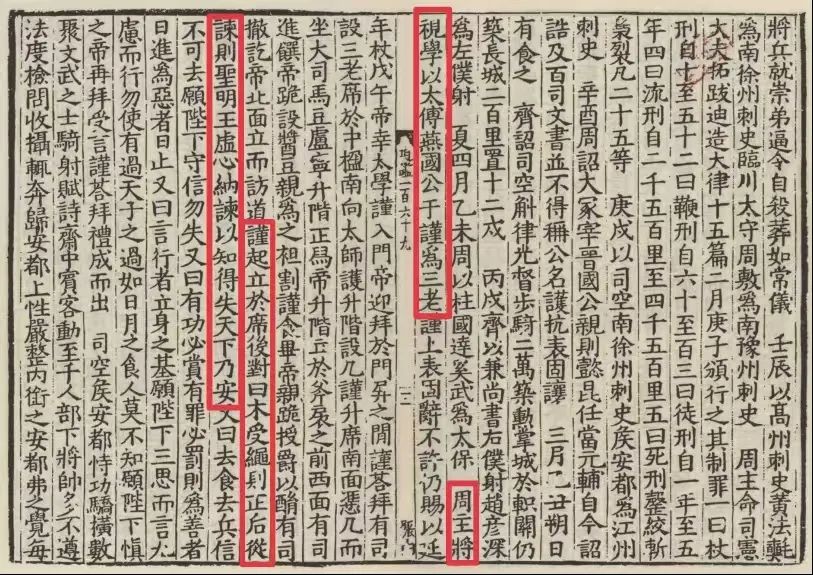 將兵就崇弟逼令自殺葬如常儀 壬辰以髙州刺史黃法𣰋
爲南徐州刺史臨川太守周敷爲南豫州刺史 周主命司憲
大夫拓跋迪造大律十五篇二月庚子頒行之其制罪一曰杖
刑自十至五十二曰鞭刑自六十至百三曰徒刑自一年至五
年四曰流刑自二千五百里至四千五百里五曰死刑罄絞斬
梟裂凡二十五等 庚戌以司空南徐州刺史侯安都爲江州
刺史 辛酉周詔大冢宰晉國公親則懿昆任當元輔自今詔
誥及百司文書並不得稱公名護抗表固讓 三月乙丑朔日
有食之 齊詔司空斛律光督步騎二萬築勳掌城於軹關仍
築長城二百里置十二戍 丙戌齊以兼尚書右僕射趙彥深
爲左僕射 夏四月乙未周以柱國達奚武爲太保 周王將
視學以太傅燕國公于謹爲三老謹上表固辭不許仍賜以延
通鑑一百六十九
年杖戊午帝幸太學謹入門帝迎拜於門屏之閒謹荅拜有司
設三老席於中楹南向太師護升階設几謹升席南面憑几而
坐大司馬豆盧寧升階正舃帝升階立於斧扆之前西面有司
進饌帝跪設醬豆親爲之袒割謹食畢帝親跪授爵以酳有司
撤訖帝北面立而訪道謹起立於席後對曰木受繩則正后從
諫則聖明王虛心納諫以知得失天下乃安又曰去食去兵信
不可去願陛下守信勿失又曰有功必賞有罪必罰則爲善者
日進爲惡者日止又曰言行者立身之基願陛下三思而言九
慮而行勿使有過天子之過如日月之食人莫不知願陛下愼
之帝再拜受言謹荅拜禮成而出 司空侯安都恃功驕橫數
聚文武之士騎射賦詩齋中賓客動至千人部下將帥多不遵
法度檢問收攝輒奔歸安都上性嚴整內銜之安都弗之覺毎